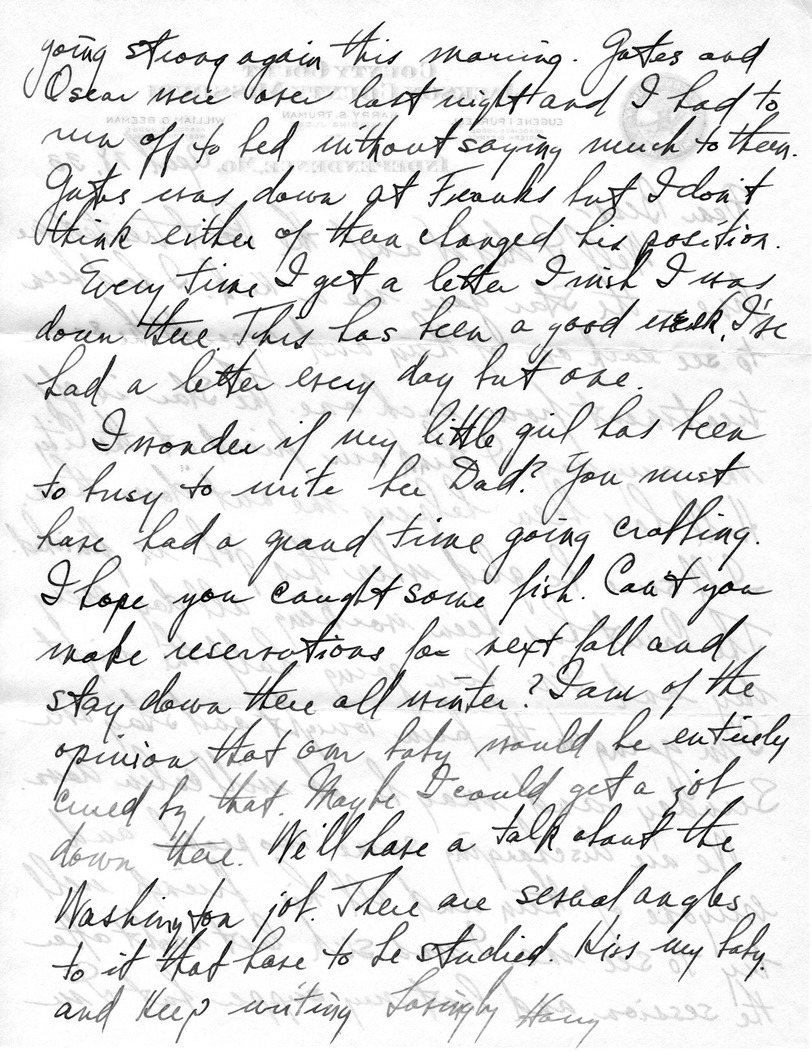 going strong again this morning. Gates and
Oscar were over last night and I had to
run off to bed without saying much to them.
Gates was down at Franks but I don't
think either of them changed his position.
Every time I get a letter I wish I was
down there. This has been a good week, I've
had a letter every day but one.
I wonder if my little girl has been
to busy to write her Dad? You must
have had a grand time going crabbing.
I hope you caught some fish. Can't you
make reservations for next fall and
stay down there all winter? I am of the
opinion that our baby would be entirely
cured by that. Maybe I could get a job
down there. We'll have a talk about the
Washington job. There are several angles
to it that have to be studied. Kiss my baby.
and keep writing Lovingly Harry